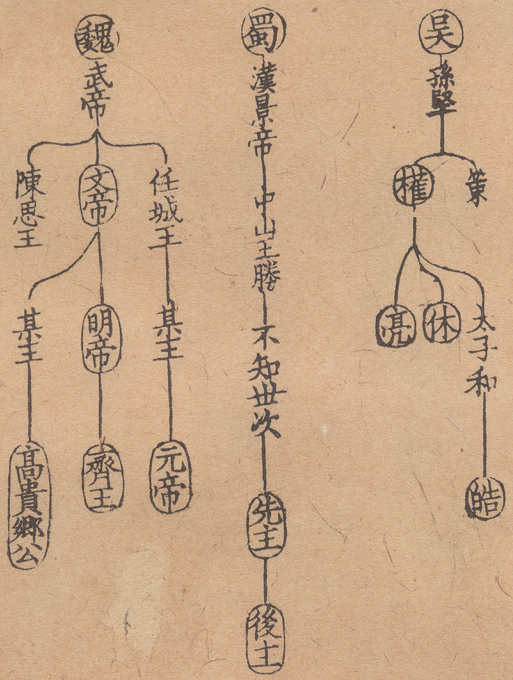 吴
孫堅
策
權
太子和
休
亮
皓
蜀
漢景帝
中山王勝
不知世次
先主
後主
魏
武帝
任城王
文帝
陳思王
某王
明帝
某王
元帝
齊王
高貴鄉公